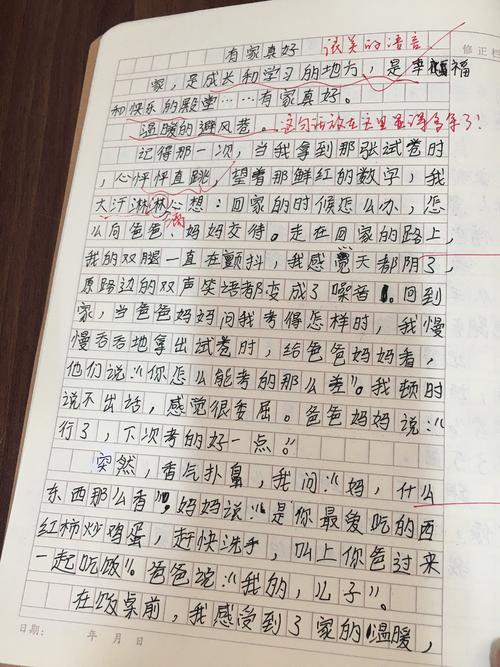 修正栏
有家真好 很美的语言
家，是成长和学习的地方，是幸福
和快乐的殿堂……有家真好。
温暖的避风巷。这句话放在这里显得多余了！
记得那一次，当我拿到那张试卷时
，心怦怦直跳，望着那鲜红的数字，我
大汗淋淋心想：回家的时候怎么办，怎
么向爸爸、妈妈交待。走在回家的路上，
我的双腿一直在颤抖，我感觉天都阴了，
原路边的双声笑语都变成了噪音。回到
家，当爸爸妈妈问我考得怎样时，我慢
慢吞吞地拿出试卷时，给爸爸妈妈看，
他们说：“你怎么能考的那么差”。我顿时
说不出话，感觉很委屈。爸爸妈妈说：“
行了，下次考的好一点。”
突然，香气扑鼻，我问：“妈，什么
东西那么香”，妈妈说：“是你最爱吃的西
红柿炒鸡蛋，赶快洗手，叫上你爸过来
一起吃饭”。爸爸说：“我的，儿子”。
在饭桌前，我感受到了家的温暖，
日期： 年 月 日